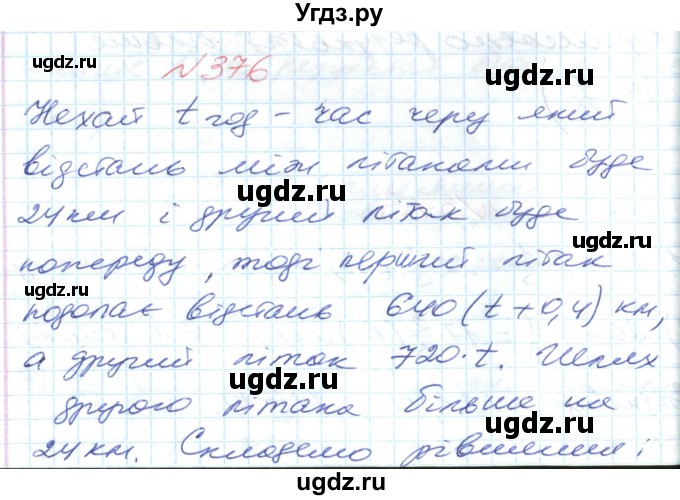 Угдз.ру
№376
Нехай t год - час через який
відстань між літаками буде
24 км і другий літак буде
попереду, тоді перший літак
подолає відстань 640(t+0,4) км,
а другий літак 720·t. Шлях
другого літака більше на
24 км. Складемо рівняння:
ugdz.ru
ugdz.ru
ugdz.ru
ugdz.ru
ugdz.ru
ugdz.ru
ugdz.ru
ugdz.ru
ugdz.ru
ugdz.ru
Угдз.ру